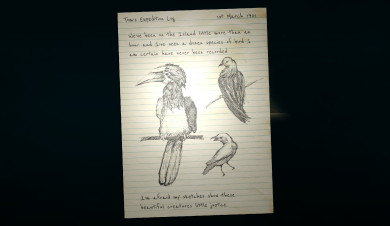 Tom's Expedition Log 1st March 1901
We've been on the Island little more than an
hour and I've seen a dozen species of bird I
am certain have never been recorded
I'm afraid my sketches show these
beautiful creatures little justice